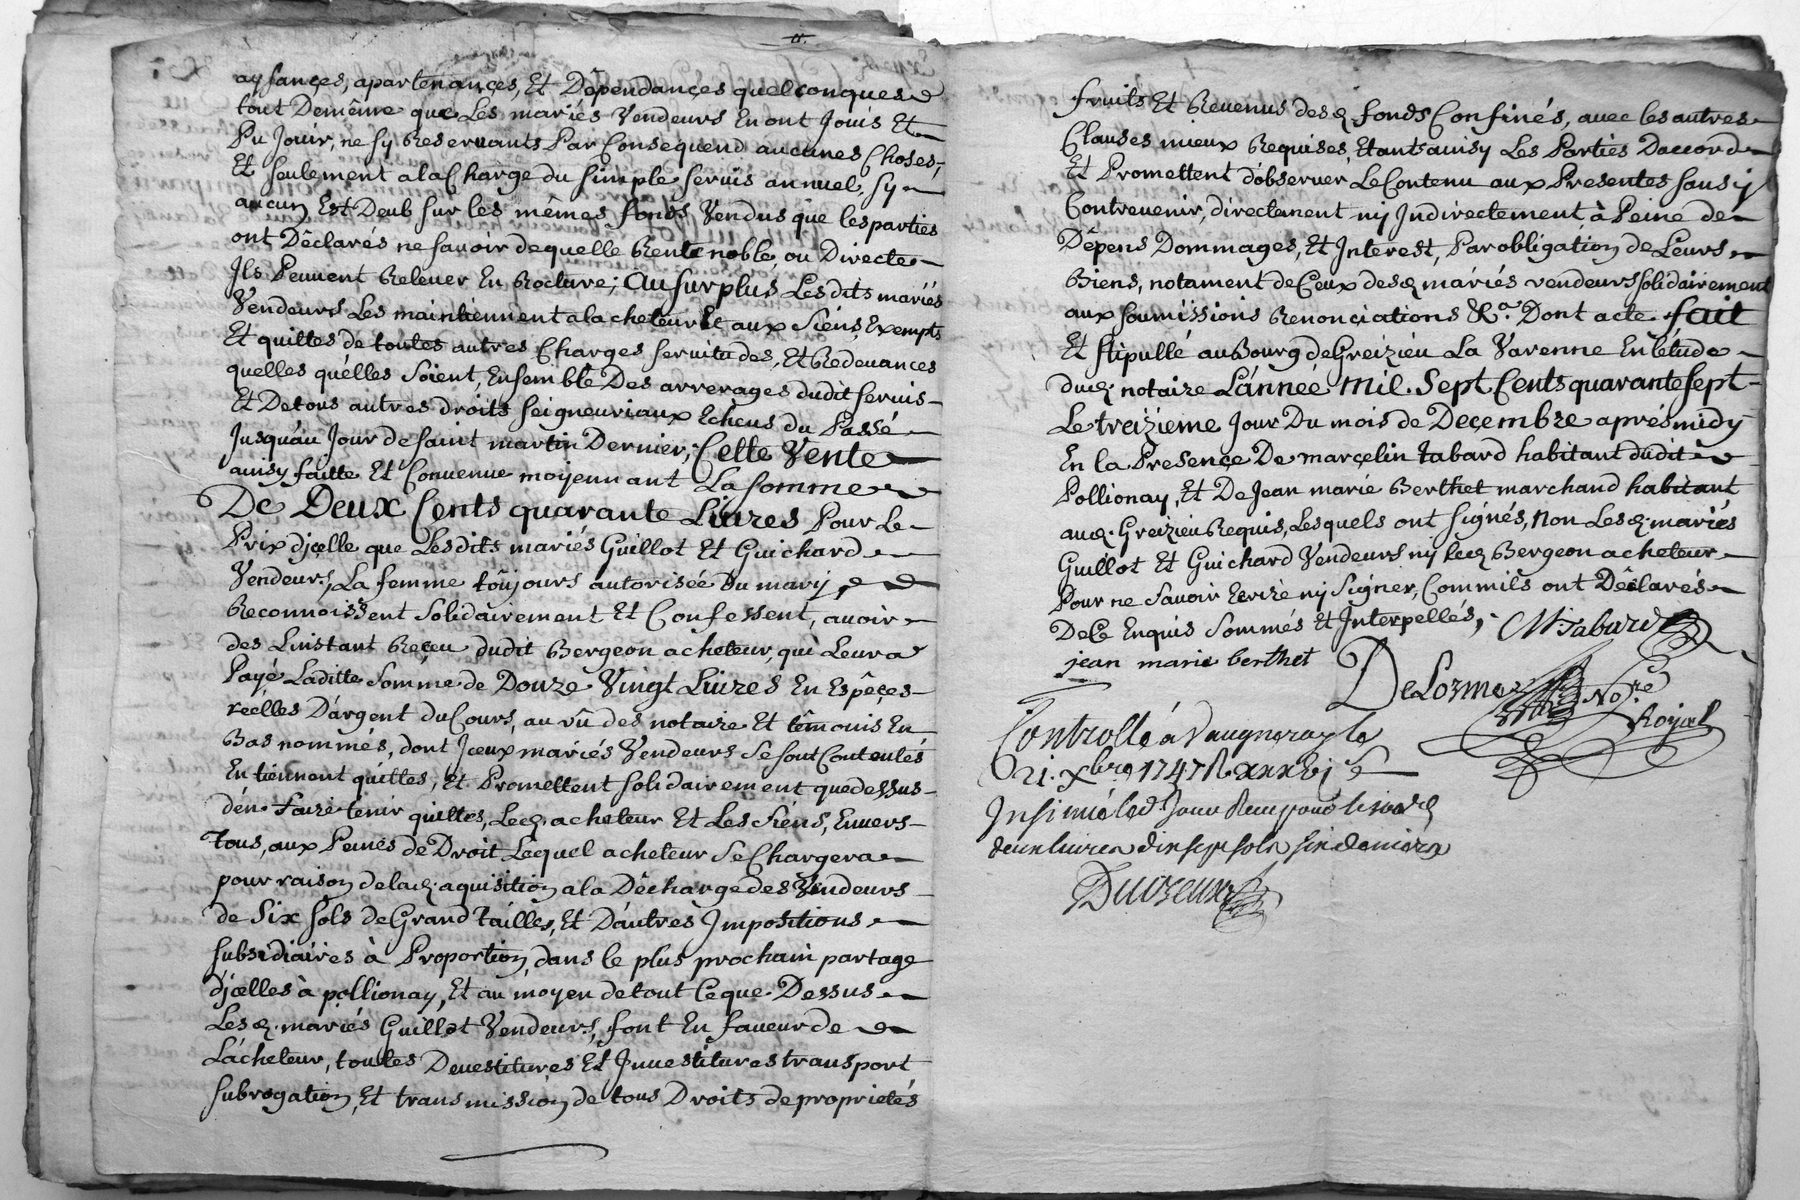 aysançes, apartenançes, Et Dêpendançes quelconques
tout Demême que Les mariés Vendeurs En ont Jouis Et
Pu Jouir, ne sy Reservants Par Consequend aucunes Choses,
Et seulement ala Charge du simple servis annuel, sy
aucun Est Deub sur les mêmes fonds Vendus que les parties
ont Dêclarés ne savoir de quelle Rente noble, ou Directe
Ils Peuvent Relever En Roclure; Au surplus Lesdits mariés
Vendeurs Les maintiennent alacheteur Et aux Siéns Exempts
Et quittes de toutes autres Charges servitudes, Et Redevances
quelles quélles Soient, Ensemble Des arrerages dudit servis
Et De tous autres droits seigneuriaux Echeus du Passé
Jusquáu Jour de saint martin Dernier; Cette Vente
ainsy faitte Et Convenue moyennant La somme
De Deux Cents quarante Livres Pour Le
Prix djçelle que Lesdits mariés Guillot Et Guichard
Vendeurs, La femme toûjours autorisée Du mary,
Reconnoissent Solidairement Et Confessent, avoir
des Linstant Reçeu dudit Bergeon acheteur, qui Leur a
Payé Laditte Somme de Douze Vingt Livres En Espêçes
réélles D'argent du Cours, au vû des notaire Et têmouis En
Bas nommés, dont Jçeux mariés Vendeurs Se sont Contentés
En tiennent quittes, et Promettent solidairement que dessus
dén faire tenir quittes, Led. acheteur Et Les Siéns, Envers
Tous, aux Peines de Droit. Lequel acheteur Se Chargera
pour raison de lad. aquisition ala Dêcharge des Vendeurs
de Six sols de Grand tailles, Et Dáutres Impositions
subsidiaires à Proportion, dans le plus prochain partage
djçelles à pollionay, Et au moyen de tout Ce que Dessus
Lesd. mariés Guillot Vendeurs, font En faveur de
Lácheteur, toutes Devestitures Et Investitures transport
subrogation, Et transmission de tous Droits de proprietés
fruits Et Revenus desd. fonds Confinés, avec les autres
Clauses mieux Requises, Etants ainsy Les Parties Daccord
Et Promettent d'observer Le Contenu aux Presentes sans y
Contrevenir, directement ny Indirectement à Peine de
Dêpens Dommages, Et Interest, Par obligation de Leurs
Biens, notament de Ceux desd. mariés vendeurs solidairement
aux soumissions Renonçiations &a. Dont acte fait
Et stipullé au Bourg de Greizieu La Varenne En létude
dud. notaire L'année Mil Sept Cents quarante sept
Le treizieme Jour Du mois de Deçembre aprés midy
En la Presençe De marçelin tabard habitant dudit
Pollionay, Et De Jean marie Berthet marchand habitant
aud. Greizieu Requis, Lesquels ont signés, Non Lesd. mariés
Guillot Et Guichard Vendeurs ny led. Bergeon acheteur
Pour ne Savoir Ecrire ny Signer, Commils ont Dêclarés
De Ce Enquis Sommés Et Interpellés,
M. Tabard
jean marie berthet
DeLorme No.re
Royal
Controllé a Vaugneray le
21. Xbre 1747 R xxxvj s
Insinué led. Jour
deux livres dix sept sols six deniers